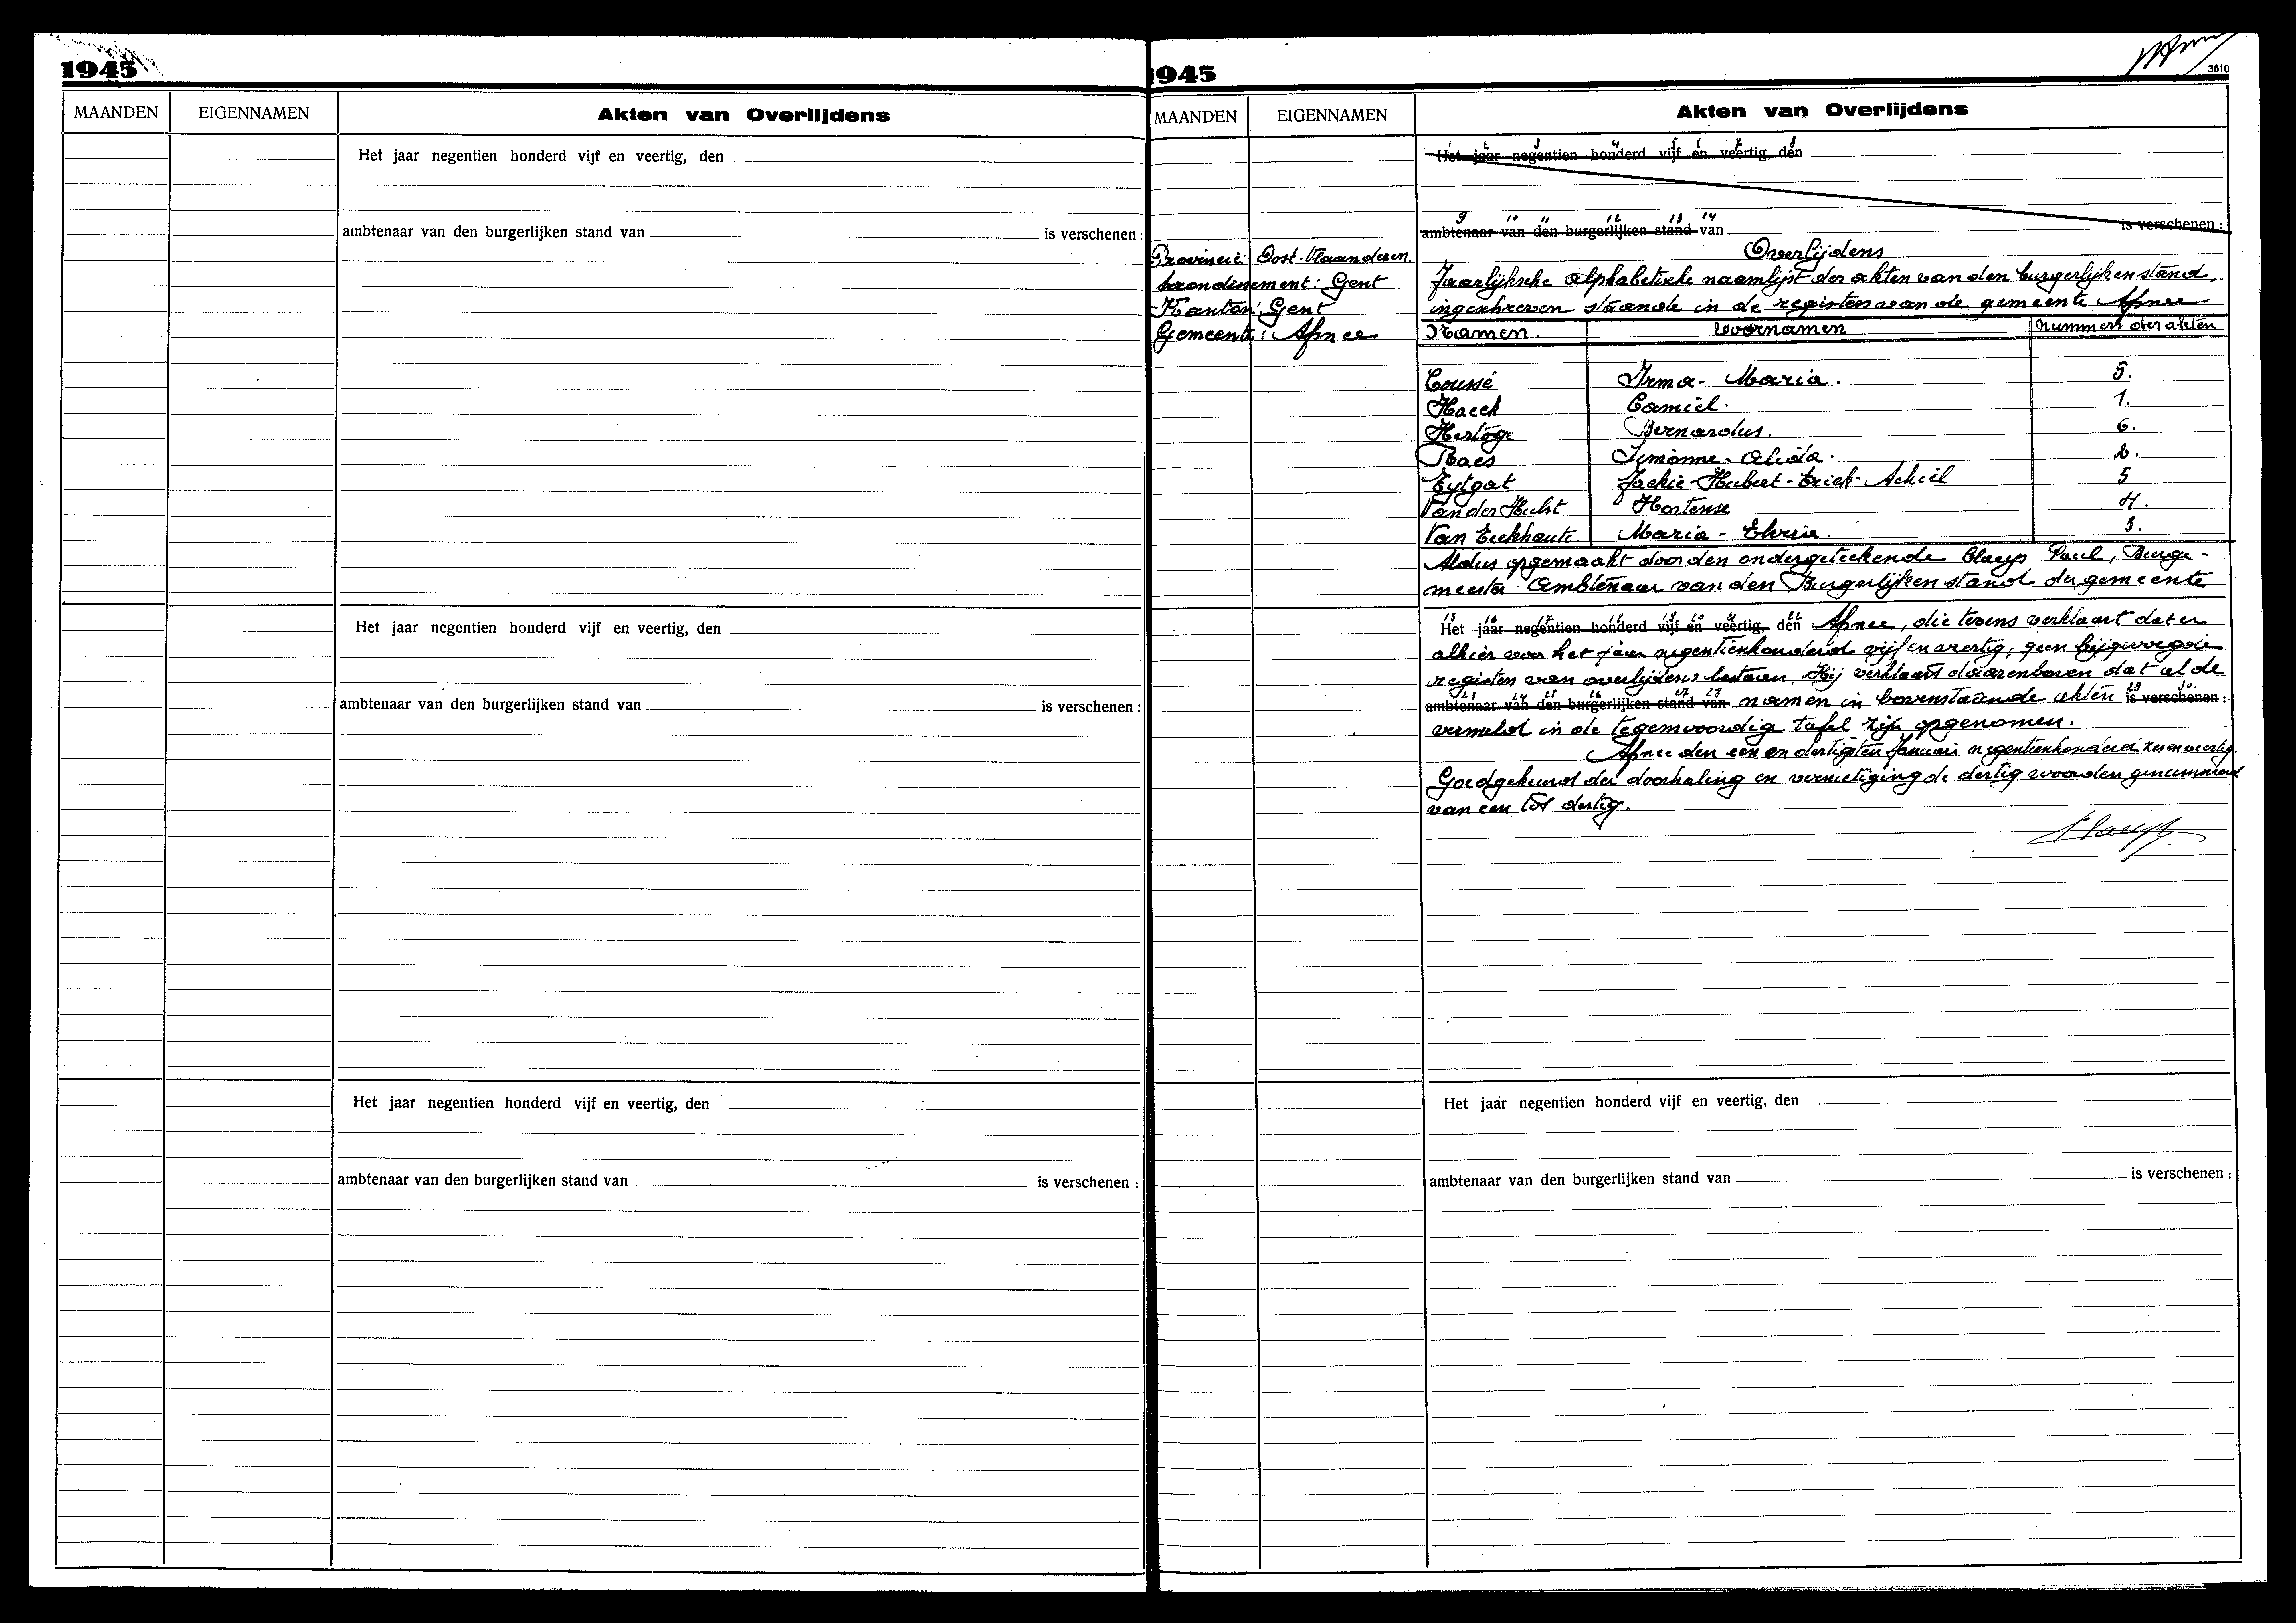 1945
MAANDEN EIGENNAMEN Akten van Overlijdens
Het jaar negentien honderd vijf en veertig, den
ambtenaar van den burgerlijken stand van is verschenen :
Het jaar negentien honderd vijf en veertig, den
ambtenaar van den burgerlijken stand van is verschenen :
Het jaar negentien honderd vijf en veertig, den
ambtenaar van den burgerlijken stand van is verschenen :
1945
3610
MAANDEN EIGENNAMEN Akten van Overlijdens
Het jaar negentien honderd vijf en veertig, den
9 10 11 12 13 14
ambtenaar van den burgerlijken stand van is verschenen :
Provincie: Oost-Vlaanderen.
Arrondissement: Gent
Kanton: Gent
Gemeente: Afsnee
Overlijdens
Jaarlijksche alphabetische naamlijst der akten van den burgerlijken stand,
ingeschreven staande in de registers van de gemeente Afsnee
Namen. Voornamen Nummers der akten
Coussé Irma - Maria. 5.
Haeck Camiel. 1.
Hertoge Bernardus. 6.
Raes Simonne - Alida. 2.
Eytgat Jackie - Hubert - Erick - Achiel 5
Van der Hulst Hortense 4.
Van Eeckhaute Maria - Elvria. 3.
Aldus opgemaakt door den ondergeteekende Claeys Paul, Burge-
meester - Ambtenaar van den Burgerlijken stand der gemeente
15 16 17 18 19 20 21 22
Het jaar negentien honderd vijf en veertig, den Afsnee, die tevens verklaart dat er
alhier voor het jaar negentienhonderd vijf en veertig, geen bijgevoegde
registers van overlijdens bestaan. Hij verklaart daarenboven dat al de
23 24 25 26 27 28 29 30
ambtenaar van den burgerlijken stand van namen in bovenstaande akten is verschenen :
vermeld in de tegenwoordig tafel zijn opgenomen.
Afsnee den een en dertigsten Januari negentienhonderd zes en veertig.
Goedgekeurd der doorhaling en vernietiging de dertig woorden genummerd
van een tot dertig.
Claeys
Het jaar negentien honderd vijf en veertig, den
ambtenaar van den burgerlijken stand van is verschenen :